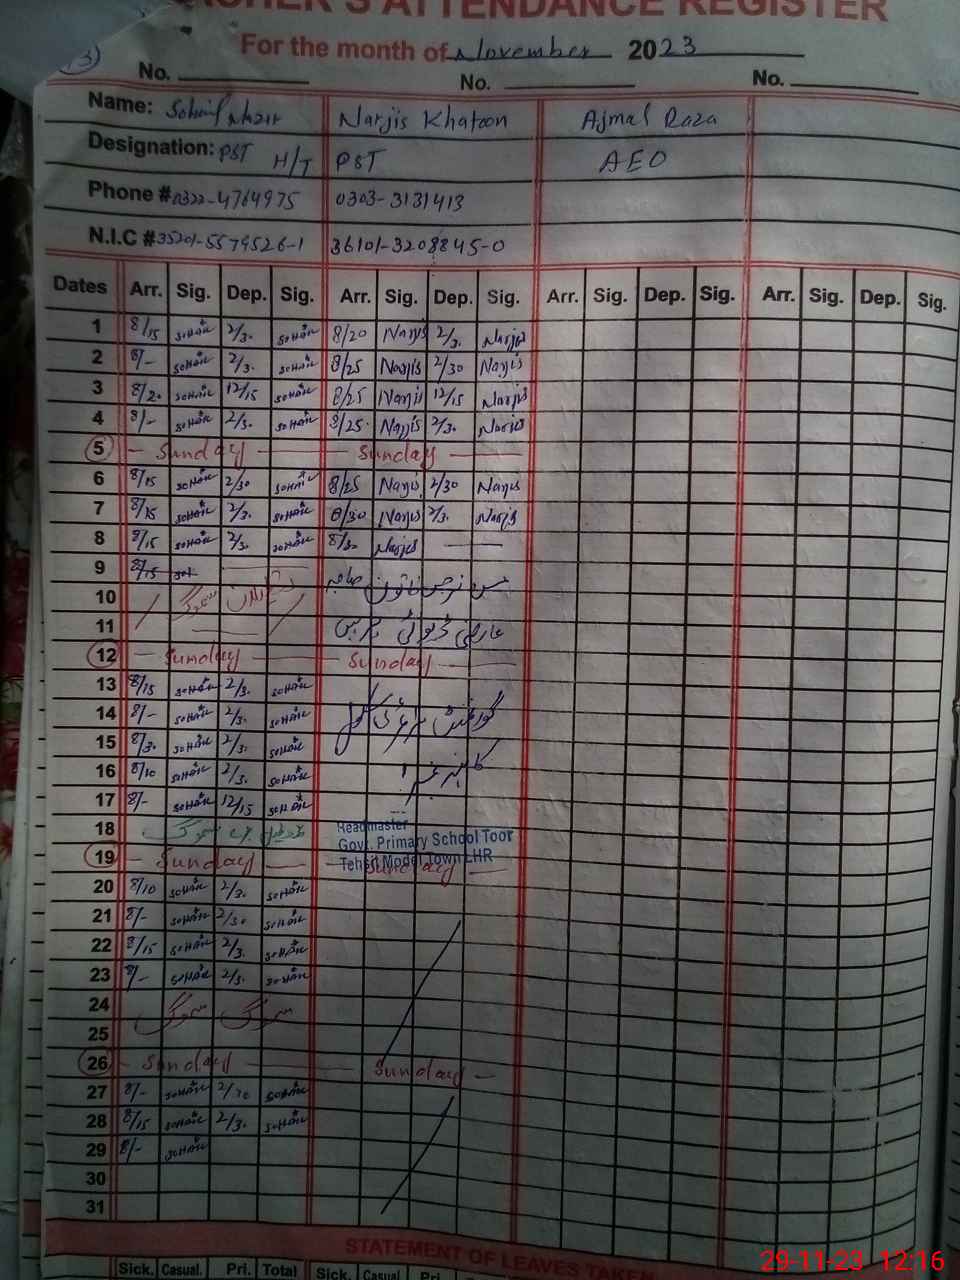 TEACHER'S ATTENDANCE REGISTER
For the month of November 2023
No. No. No.
Name: Sohail Nazir Narjis Khatoon Ajmal Raza
Designation: PST H/T PST AEO
Phone # 0322-4764975 0303-3131413
N.I.C # 35201-5579526-1 36101-3208845-0
Dates Arr. Sig. Dep. Sig. Arr. Sig. Dep. Sig. Arr. Sig. Dep. Sig. Arr. Sig. Dep. Sig.
1 8/15 SOHAIL 2/3. SOHAIL 8/20 Narjis 2/3. Narjis
2 8/- SOHAIL 2/3. SOHAIL 8/25 Narjis 2/30 Narjis
3 8/20 SOHAIL 12/15 SOHAIL 8/25 Narjis 12/15 Narjis
4 8/- SOHAIL 2/3. SOHAIL 8/25 Narjis 2/3. Narjis
5 Sunday Sunday
6 8/15 SOHAIL 2/30 SOHAIL 8/25 Narjis 2/30 Narjis
7 8/15 SOHAIL 2/3. SOHAIL 8/30 Narjis 2/3. Narjis
8 8/15 SOHAIL 2/3. SOHAIL 8/30 Narjis
9 8/15 مس نرجس خاتون صاحبہ
10 سموگ
11 عارضی ڈیوٹی پر ہیں
12 Sunday Sunday
13 8/15 SOHAIL 2/3. SOHAIL
14 8/- SOHAIL 2/3. SOHAIL گورنمنٹ پرائمری سکول
15 8/3. SOHAIL 2/3. SOHAIL
16 8/10 SOHAIL 2/3. SOHAIL
17 8/- SOHAIL 12/15 SOHAIL
18 Headmaster
Govt. Primary School Toor
19 Sunday Tehsil Model Town LHR Sunday
20 8/10 SOHAIL 2/3. SOHAIL
21 8/- SOHAIL 2/30 SOHAIL
22 8/15 SOHAIL 2/3. SOHAIL
23 8/- SOHAIL 2/3. SOHAIL
24 سموگ سموگ
25
26 Sunday Sunday
27 8/- SOHAIL 2/30 SOHAIL
28 8/15 SOHAIL 2/3. SOHAIL
29 8/- SOHAIL
30
31
STATEMENT OF LEAVES TAKEN
29-11-23 12:16
Sick. Casual. Pri. Total Sick. Casual Pri.